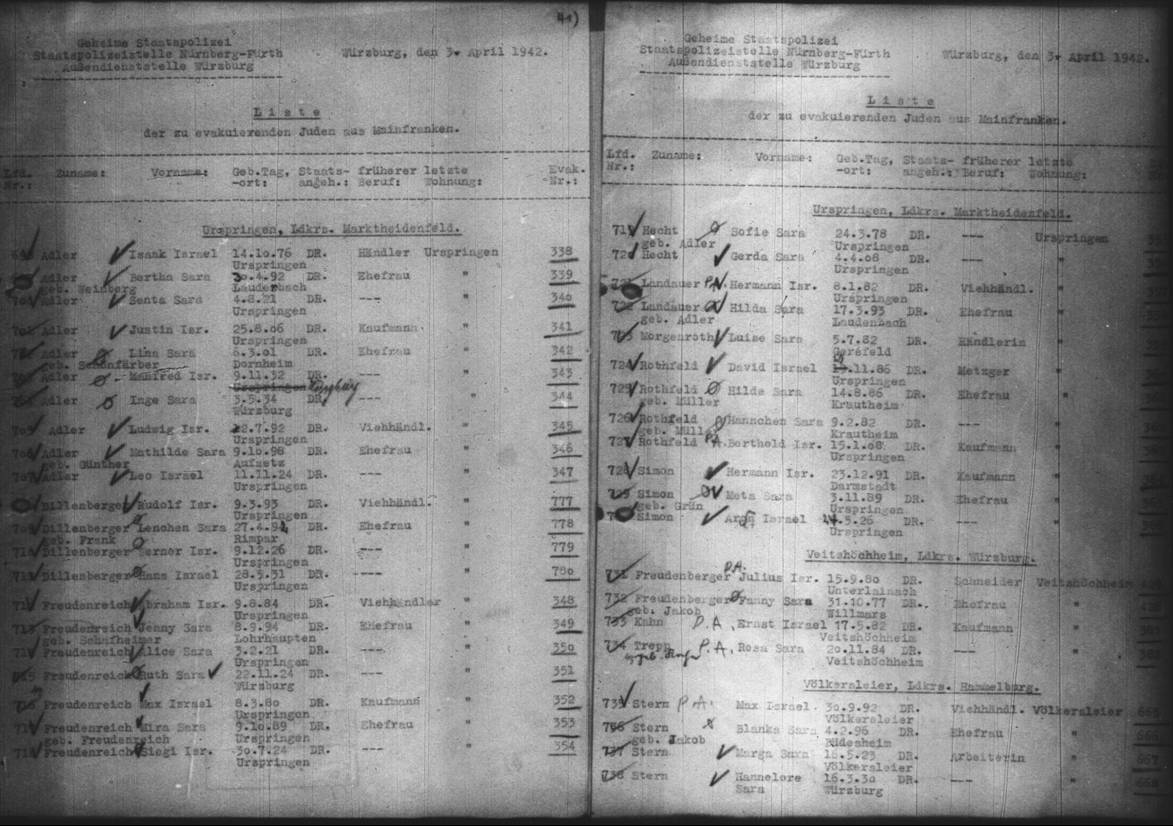 41)
Geheime Staatspolizei
Staatspolizeistelle Nürnberg-Fürth
Außendienststelle Würzburg
Würzburg, den 3. April 1942.
Liste
der zu evakuierenden Juden aus Mainfranken.
Lfd. Zuname: Vorname: Geb.Tag, Staats- früherer letzte Evak.
Nr.: -ort: angeh.: Beruf: Wohnung: Nr.:
Urspringen, Ldkrs. Marktheidenfeld.
Adler Isaak Israel 14.10.76 DR. Händler Urspringen 338
Urspringen
Adler Bertha Sara 30.4.92 DR. Ehefrau " 339
geb. Weinberg Laudenbach
Adler Senta Sara 4.8.21 DR. --- " 340
Urspringen
Adler Justin Isr. 25.8.06 DR. Kaufmann " 341
Urspringen
Adler Lina Sara 6.3.01 DR. Ehefrau " 342
geb. Schönfärber Dornheim
Adler Manfred Isr. 9.11.32 DR. --- " 343
Urspringen
Adler Inge Sara 3.5.34 DR. " 344
Würzburg
Adler Ludwig Isr. 22.7.92 DR. Viehhändl. " 345
Urspringen
Adler Mathilde Sara 9.10.98 DR. Ehefrau " 346
geb. Günther Aufsetz
Adler Leo Israel 11.11.24 DR. --- " 347
Urspringen
Dillenberger Rudolf Isr. 9.3.93 DR. Viehhändl. " 777
Urspringen
Dillenberger Lenchen Sara 27.4.94 DR. Ehefrau " 778
geb. Frank Rimpar
Dillenberger Werner Isr. 9.12.26 DR. --- " 779
Urspringen
Dillenberger Hans Israel 28.5.31 DR. --- " 780
Urspringen
Freudenreich Abraham Isr. 9.8.84 DR. Viehhändler " 348
Urspringen
Freudenreich Jenny Sara 8.9.94 DR. Ehefrau " 349
geb. Schafheimer Lohrhaupten
Freudenreich Alice Sara 3.2.21 DR. --- " 350
Urspringen
Freudenreich Ruth Sara 22.11.24 DR. --- " 351
Würzburg
Freudenreich Max Israel 8.3.80 DR. Kaufmann " 352
Urspringen
Freudenreich Mira Sara 9.10.89 DR. Ehefrau " 353
geb. Freudenreich Urspringen
Freudenreich Siegi Isr. 30.7.24 DR. --- " 354
Urspringen
Geheime Staatspolizei
Staatspolizeistelle Nürnberg-Fürth
Außendienststelle Würzburg
Würzburg, den 3. April 1942.
Liste
der zu evakuierenden Juden aus Mainfranken.
Lfd. Zuname: Vorname: Geb.Tag, Staats- früherer letzte
Nr.: -ort: angeh.: Beruf: Wohnung:
Urspringen, Ldkrs. Marktheidenfeld.
719 Hecht Sofie Sara 24.3.78 DR. --- Urspringen
geb. Adler Urspringen
720 Hecht Gerda Sara 4.4.08 DR. --- "
Urspringen
Landauer P.A. Hermann Isr. 8.1.82 DR. Viehhändl. "
Urspringen
722 Landauer Hilda Sara 17.3.93 DR. Ehefrau "
geb. Adler Laudenbach
723 Morgenroth Luise Sara 5.7.82 DR. Händlerin "
Gersfeld
724 Rothfeld David Israel 11.86 DR. Metzger "
Urspringen
725 Rothfeld Hilde Sara 14.8.86 DR. Ehefrau "
geb. Müller Krautheim
726 Rothfeld Hannchen Sara 9.2.82 DR. --- "
geb. Müller Krautheim
727 Rothfeld P.A. Berthold Isr. 15.1.08 DR. Kaufmann "
Urspringen
728 Simon Hermann Isr. 23.12.91 DR. Kaufmann "
Darmstadt
729 Simon Meta Sara 3.11.89 DR. Ehefrau "
geb. Grün Urspringen
Simon Israel 14.5.26 DR. --- "
Urspringen
Veitshöchheim, Ldkrs. Würzburg.
731 Freudenberger P.A. Julius Isr. 15.9.80 DR. Schneider Veitshöchheim
Unterlainach
732 Freudenberger Fanny Sara 31.10.77 DR. Ehefrau "
geb. Jakob Willmars
733 Kahn P.A. Ernst Israel 17.5.82 DR. Kaufmann "
Veitshöchheim
734 Trepp P.A. Rosa Sara 20.11.84 DR. --- "
geb. Veitshöchheim
Völkersleier, Ldkrs. Hammelburg.
735 Stern P.A. Max Israel 30.9.92 DR. Viehhändl. Völkersleier 665
Völkersleier
736 Stern Blanka Sara 4.2.96 DR. Ehefrau " 666
geb. Jakob Rüdesheim
737 Stern Marga Sara 16.5.23 DR. Arbeiterin " 667
Völkersleier
738 Stern Hannelore 16.3.30 DR. --- " 668
Sara Würzburg